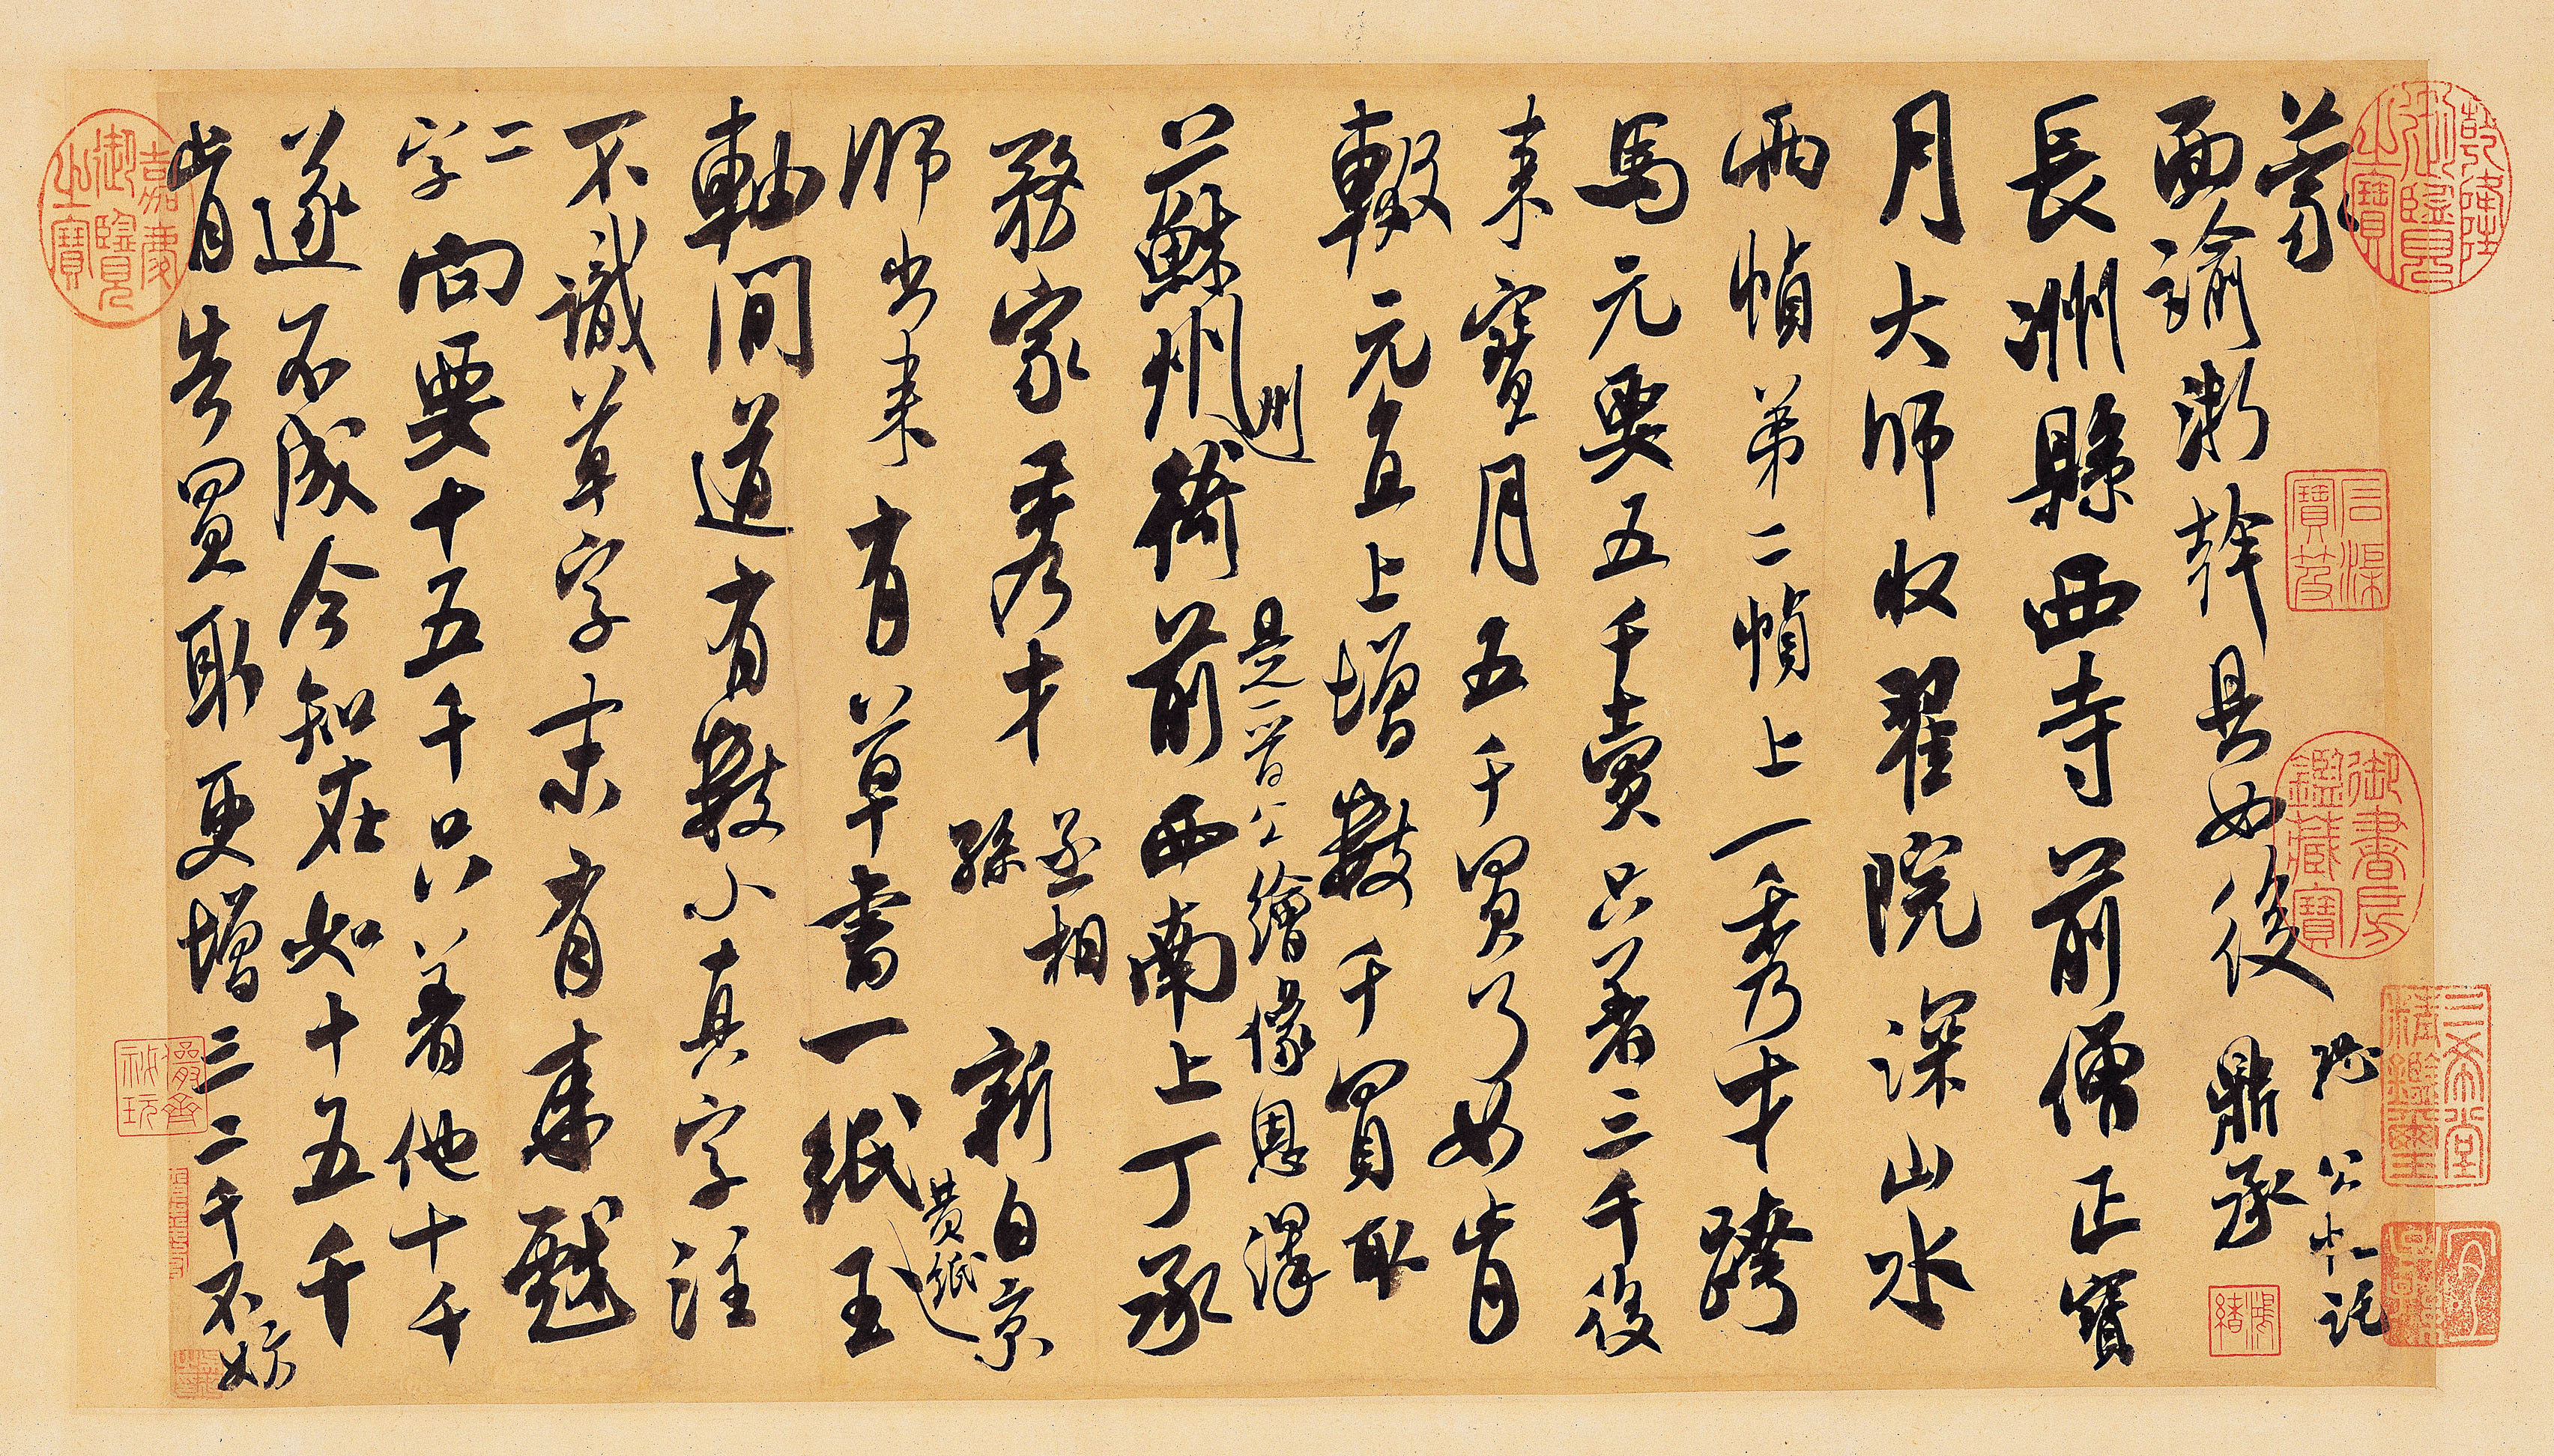 蒙
面諭浙幹具如後
鼎承
長洲縣西寺前僧正寶
月大師收翟院深山水
兩幀第二幀上一秀才跨
馬元要五千賣只著三千後
來寶月五千買了如肯
輟元直上增數千買取
州
是一晉公繪像恩澤
蘇州衙前西南上丁承
務家秀才
丞相
孫
新自京
師出來有草書一紙玉
黃紙
軸間道有數小真字注
不識草字末有來戲
二
字向要十五千只著他十千
遂不成今知在如十五千
肯告買取更增三二千不妨
乾隆御覽之寶
石渠寶笈
御書房鑑藏寶
三希堂精鑑璽
宜子孫
嘉慶御覽之寶